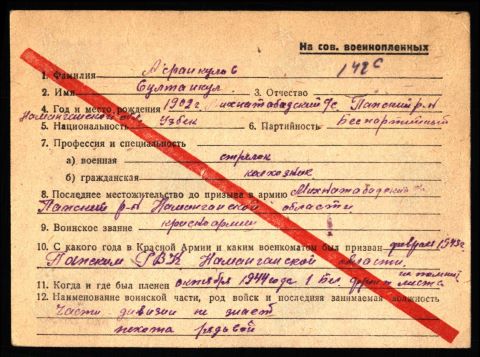 На сов. военнопленных
1. Фамилия Исраикулов
2. Имя Султанкул 3. Отчество
4. Год и место рождения 1902 г. Михнатабадский с/с Папский р-н
Наманганской обл.
5. Национальность Узбек 6. Партийность Беспартийный
7. Профессия и специальность
а) военная стрелок
б) гражданская колхозник
8. Последнее местожительство до призыва в армию Михнатабадский
Папский р-н Наманганской области
9. Воинское звание красноармеец
10. С какого года в Красной Армии и каким военкоматом был призван февраль 1943 г.
Папским РВК Наманганской области.
11. Когда и где был пленен октября 1944 года 1 Бел фронт места
не помнит
12. Наименование воинской части, род войск и последняя занимаемая должность
Части дивизии не знает
пехота рядовой